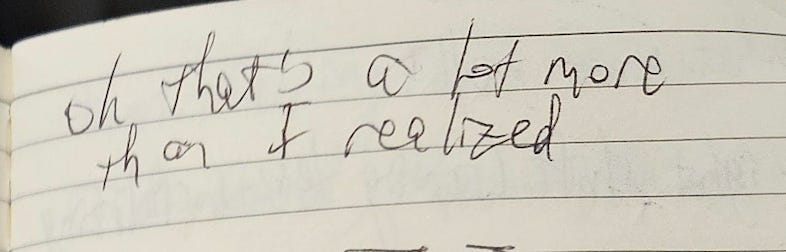 oh that's a lot more
than I realized